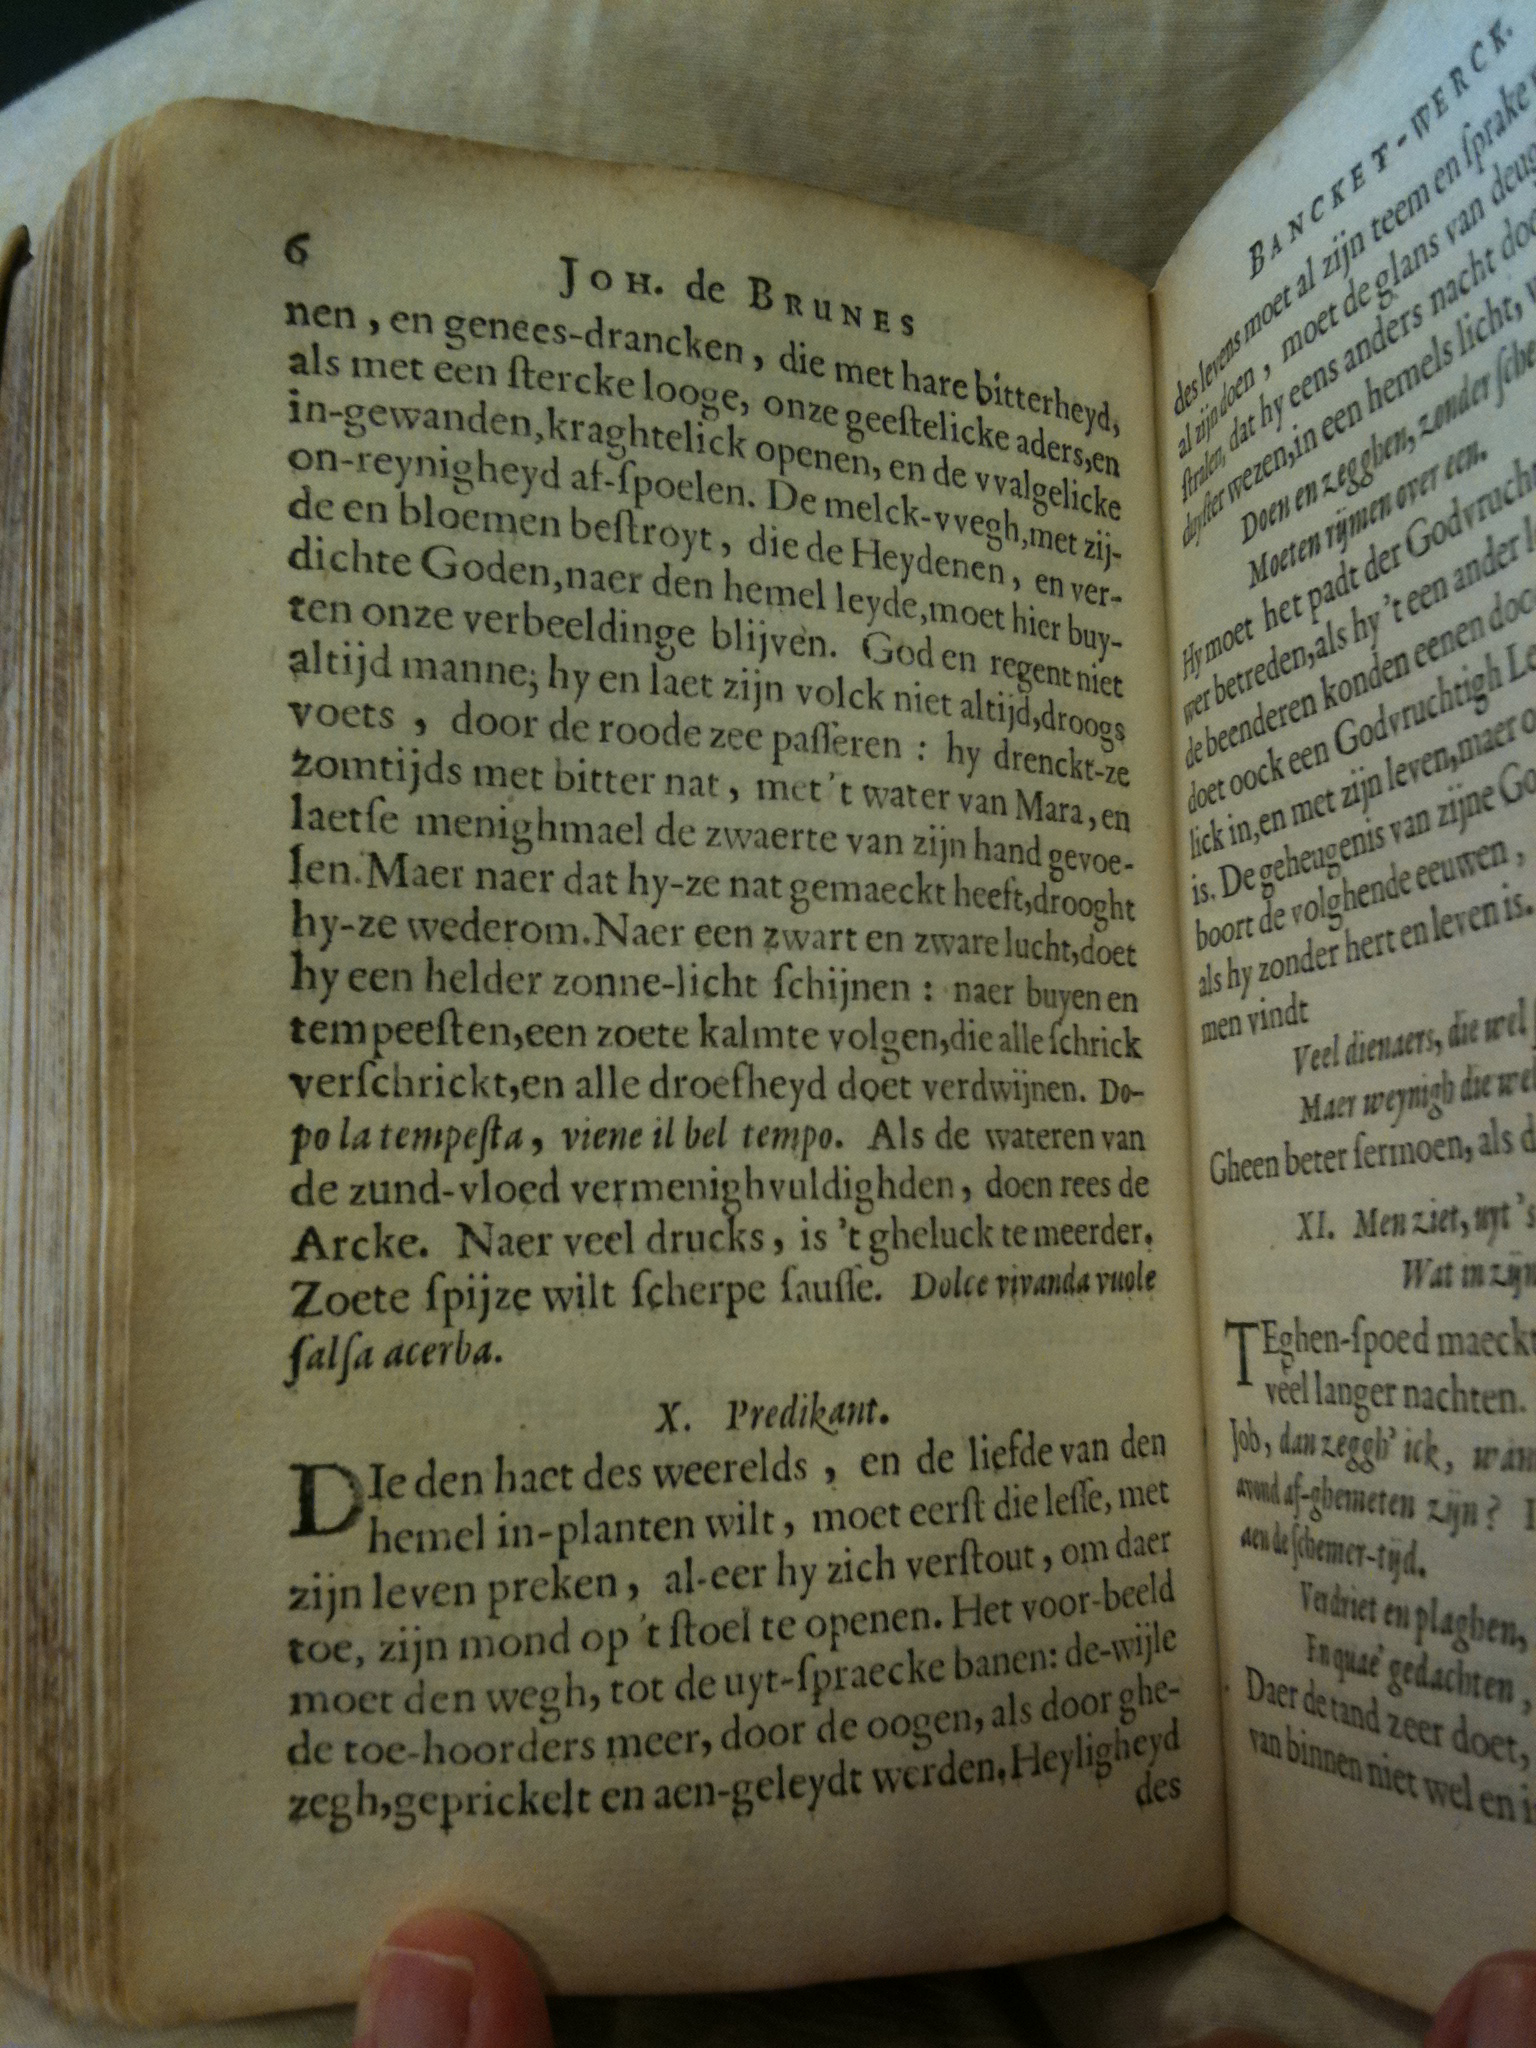 6
JOH. de BRUNES
nen, en genees-drancken, die met hare bitterheyd,
als met een ſtercke looge, onze geeſtelicke aders, en
in-gewanden, kraghtelick openen, en de vvalgelicke
on-reynigheyd af-ſpoelen. De melck-vvegh, met zij-
de en bloemen beſtroyt, die de Heydenen, en ver-
dichte Goden, naer den hemel leyde, moet hier buy-
ten onze verbeeldinge blijven. God en regent niet
altijd manne; hy en laet zijn volck niet altijd, droogs
voets, door de roode zee paſſeren: hy drenckt-ze
zomtijds met bitter nat, met 't water van Mara, en
laetſe menighmael de zwaerte van zijn hand gevoe-
len. Maer naer dat hy-ze nat gemaeckt heeft, drooght
hy-ze wederom. Naer een zwart en zware lucht, doet
hy een helder zonne-licht ſchijnen: naer buyen en
tempeeſten, een zoete kalmte volgen, die alle ſchrick
verſchrickt, en alle droefheyd doet verdwijnen. Do-
po la tempeſta, viene il bel tempo. Als de wateren van
de zund-vloed vermenighvuldighden, doen rees de
Arcke. Naer veel drucks, is 't gheluck te meerder.
Zoete ſpijze wilt ſcherpe ſauſſe. Dolce vivanda vuole
ſalſa acerba.
X. Predikant.
DIe den haet des weerelds, en de liefde van den
hemel in-planten wilt, moet eerſt die leſſe, met
zijn leven preken, al-eer hy zich verſtout, om daer
toe, zijn mond op 't ſtoel te openen. Het voor-beeld
moet den wegh, tot de uyt-ſpraecke banen: de-wijle
de toe-hoorders meer, door de oogen, als door ghe-
zegh, geprickelt en aen-geleydt werden. Heyligheyd
des
BANCKET-WERCK.
des levens moet al zijn teem en ſprake
al zijn doen, moet de glans van deug
ſtralen, dat hy eens anders nacht doe
duyſter wezen, in een hemels licht,
Doen en zegghen, zonder ſche
Moeten rijmen over een.
Hy moet het padt der Godvrucht
wer betreden, als hy 't een ander l
de beenderen konden eenen doo
doet oock een Godvruchtigh Le
lick in, en met zijn leven, maer o
is. De geheugenis van zijne Go
boort de volghende eeuwen,
als hy zonder hert en leven is.
men vindt
Veel dienaers, die wel
Maer weynigh die wel
Gheen beter ſermoen, als d
XI. Men ziet, uyt 's
Wat in zijn
TEghen-ſpoed maeckt
veel langer nachten.
Job, dan zeggh' ick, wan
avond af-ghemeten zijn? I
aen de ſchemer-tijd.
Verdriet en plaghen,
En quae' gedachten,
Daer de tand zeer doet,
van binnen niet wel en i